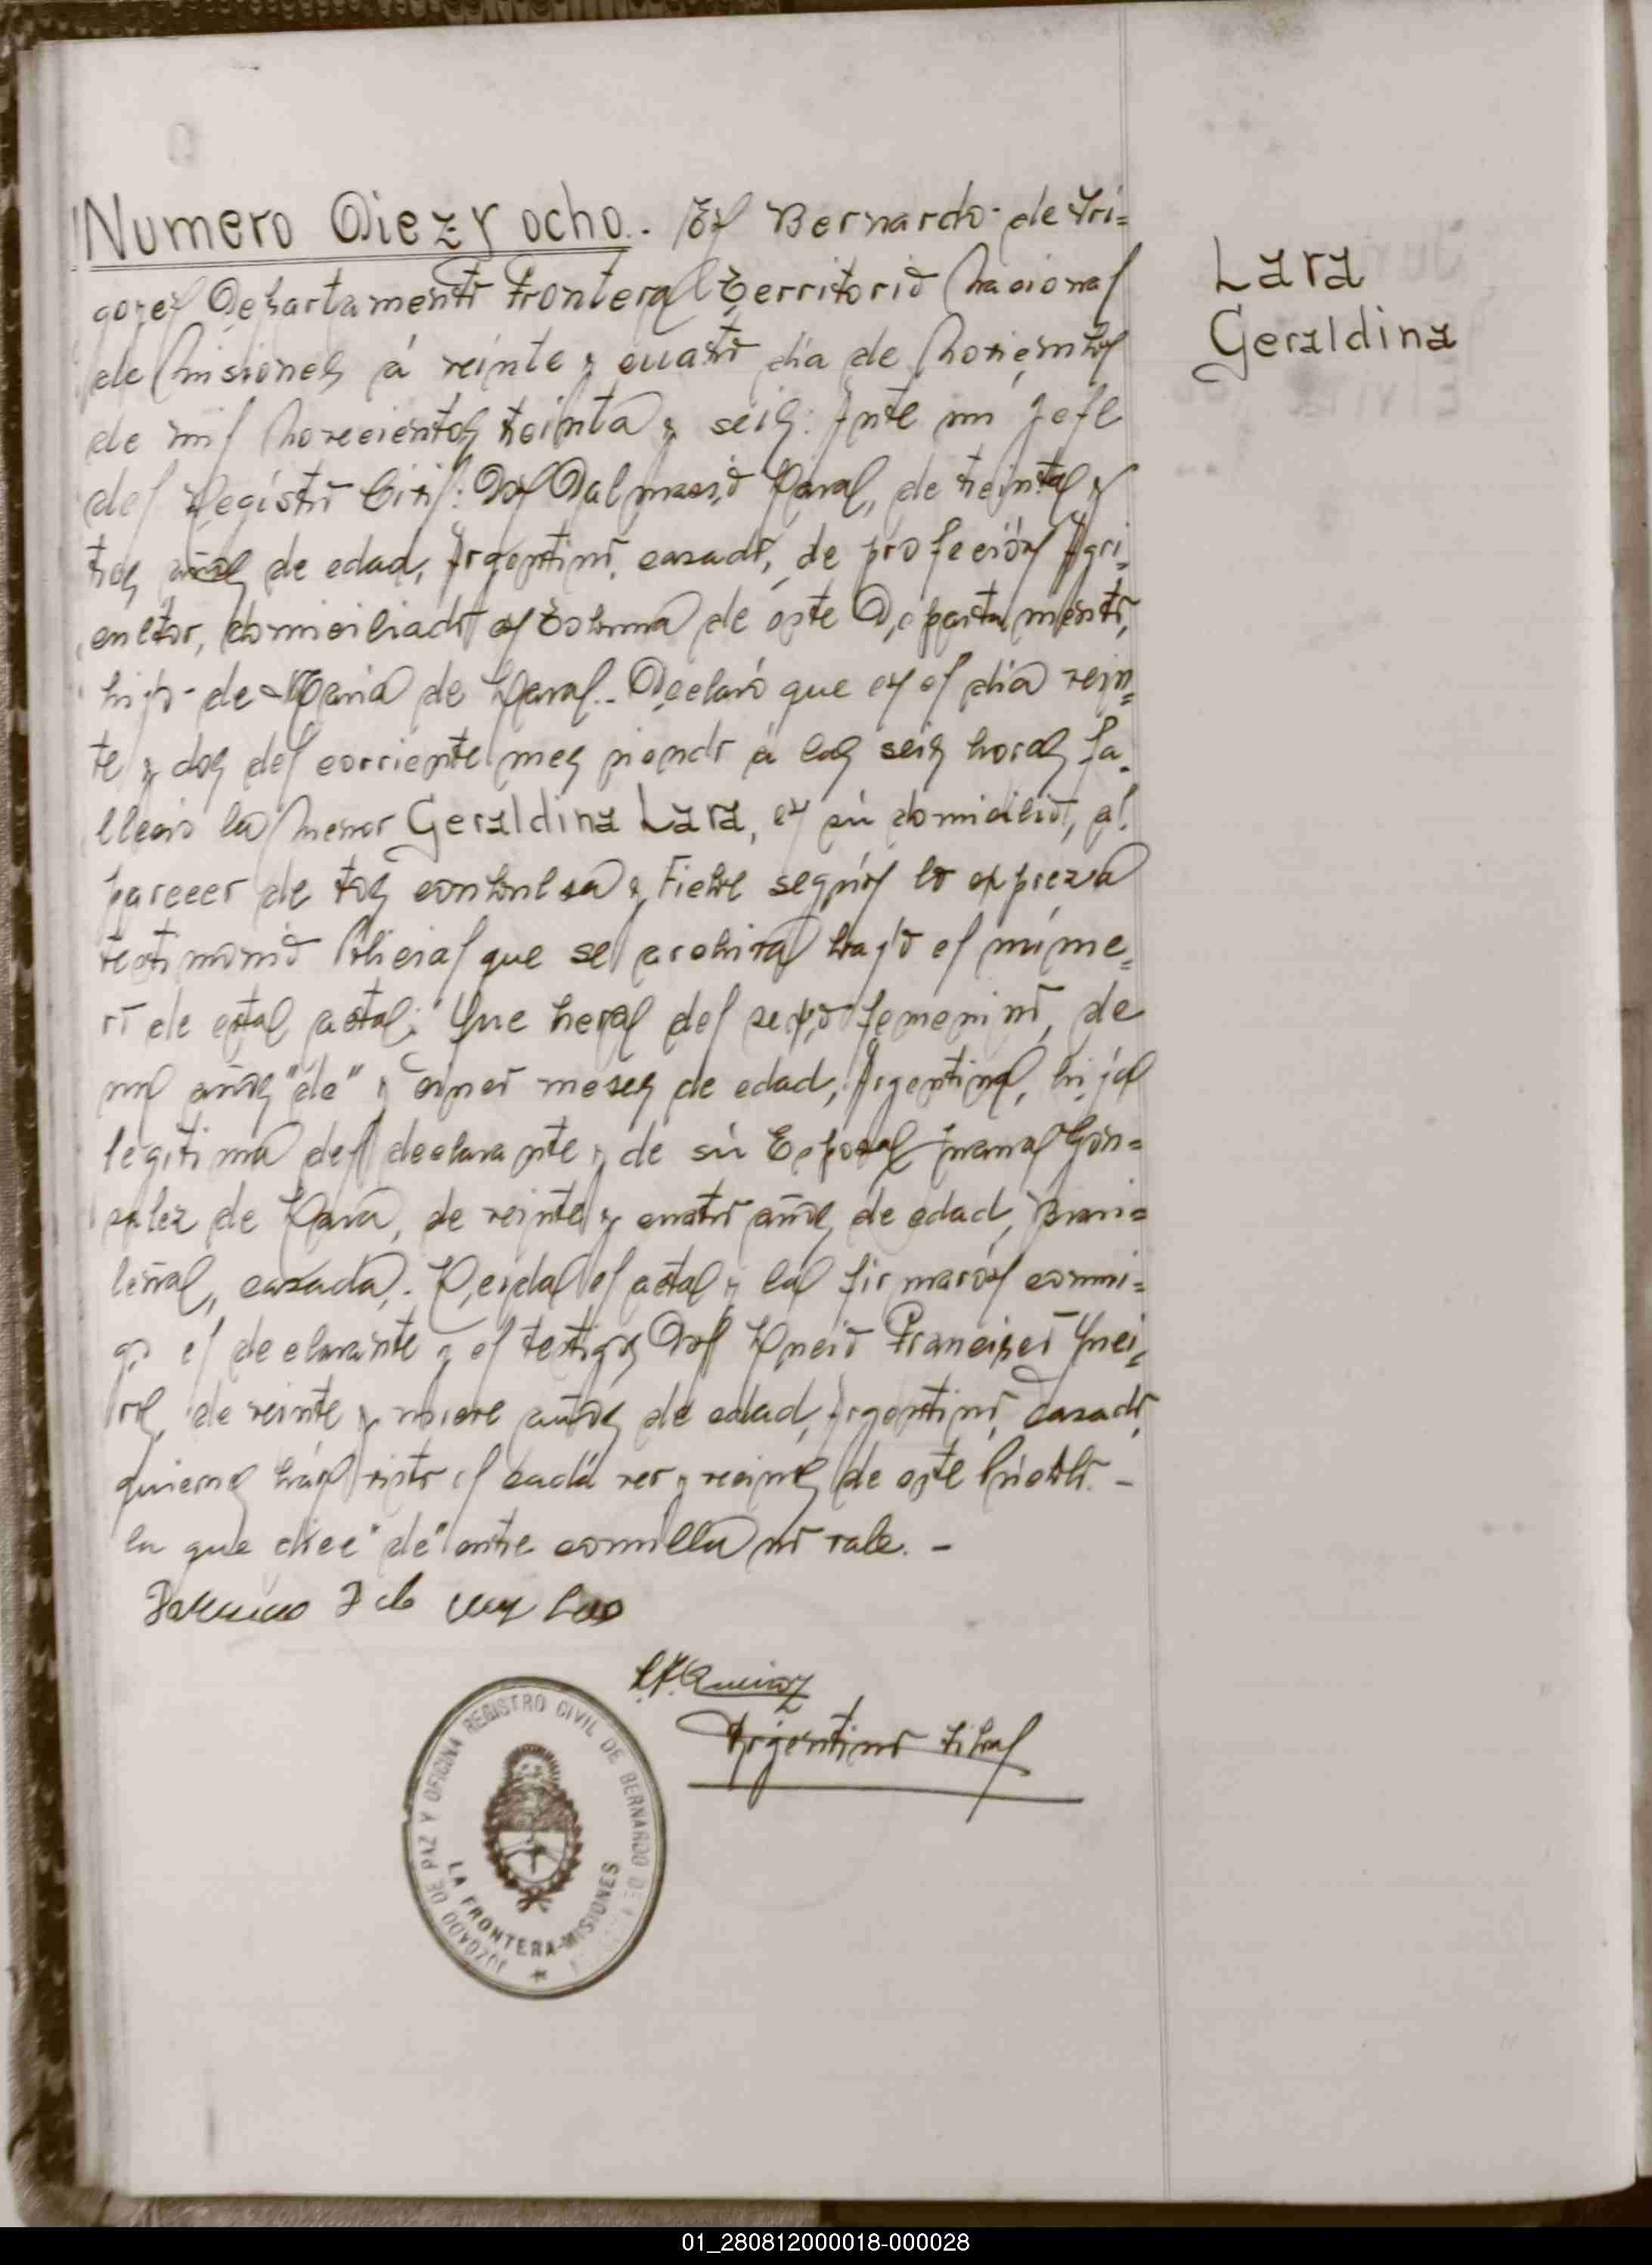 Numero Diez y ocho.. En Bernardo de Iri=
goyen Departamento Frontera Territorio Nacional
de Misiones á veinte y cuatro dia de Noviembre
de mil Novecientos treinta y seis: Ante mi Jefe
del Registro Civil: Don Dalmasio Lara, de treinta y
tres años de edad, Argentino, casado, de profeción Agri-
cultor, domiciliado en de éste Departamento,
hijo de Maria de Lara.. Declaró que en el dia vein=
te y dos del corriente mes siendo á las seis horas fa-
llecio la Menor Geraldina Lara, en sú domicilio, al
pareeer de tos combulsa y Fiebre según lo expreza
testimonio Policial que se archiva bajo el núme=
ro de esta acta: Que hera del sexso femenino, de
un años "de" y cinco meses de edad, Argentina, hija
legitima del declarante y de sú Esposa Juana Gon=
salez de Lara, de veinte y cuatro años de edad, Brasi=
leña, casada. Leida el acta y la firmarón conmi=
go el declarante y el testigos Don Lucio Francisco Quei-
ros, de veinte y nueve años de edad, Argentino, Casado,
quienes hán visto el cadá ver y vecinos de este Pueblo. -
lo que dice "de" entre comilla no vale. -
L.F. Queiroz
Argentino
JUZGADO DE PAZ Y OFICINA REGISTRO CIVIL DE BERNARDO DE I
LA FRONTERA-MISIONES
Lara
Geraldina
01_280812000018-000028